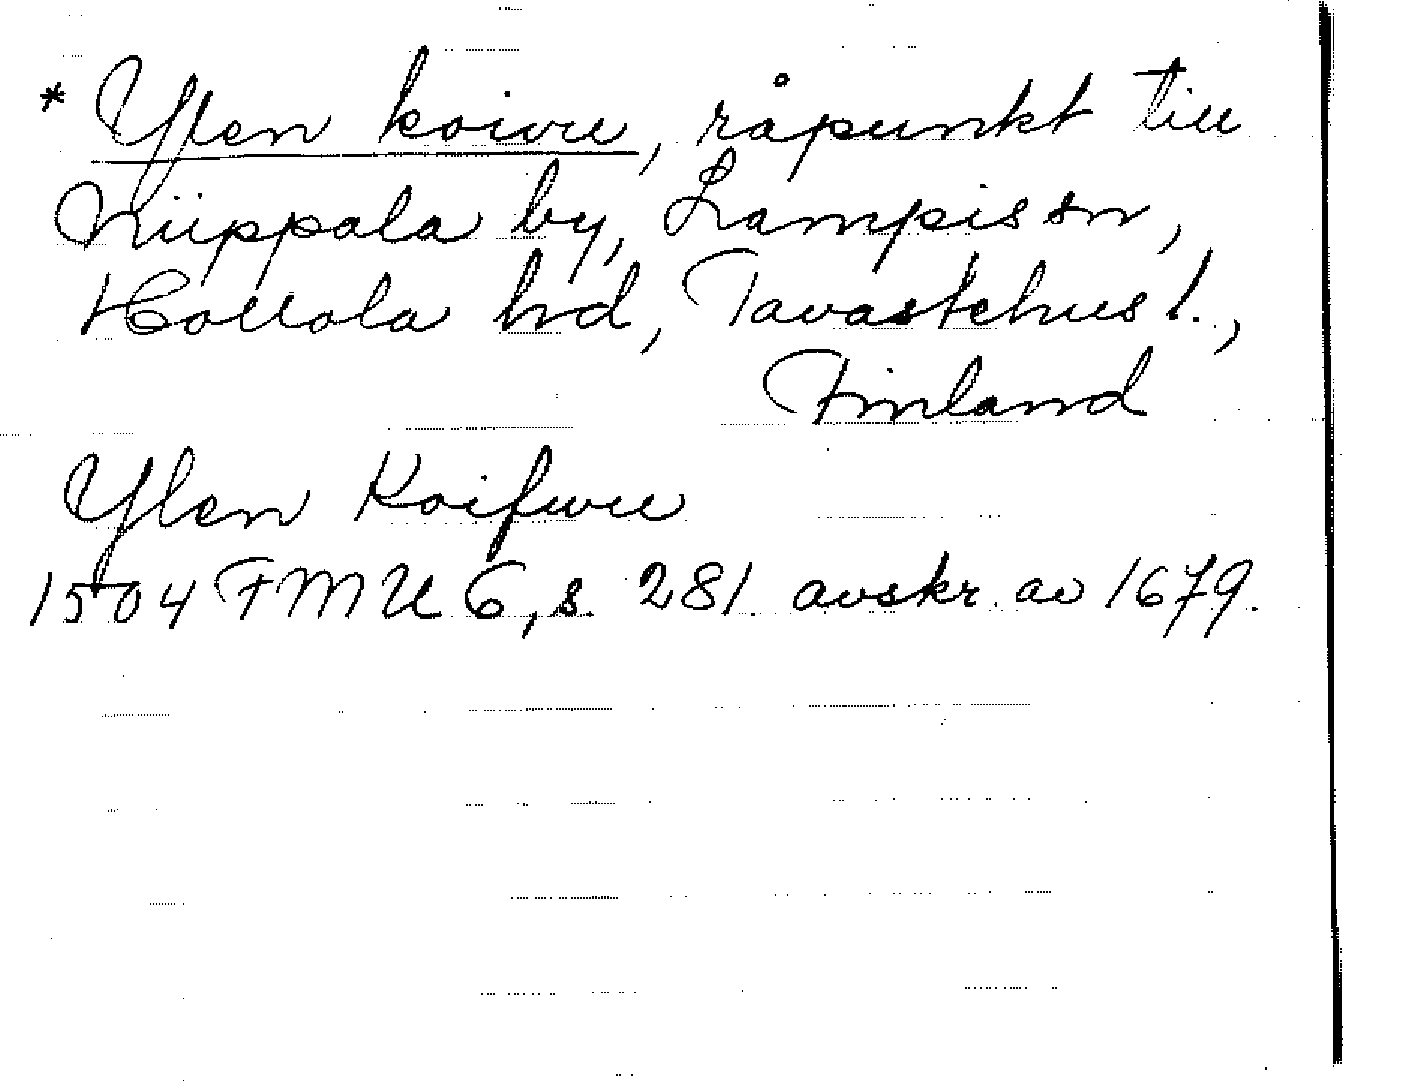 * Ylen koivu, råpunkt till
Niippala by, Lampis sn,
Hollola hd, Tavastehus l.,
Finland
Ylen Koifwu
1504 FMU 6, s. 281 avskr. av 1679.